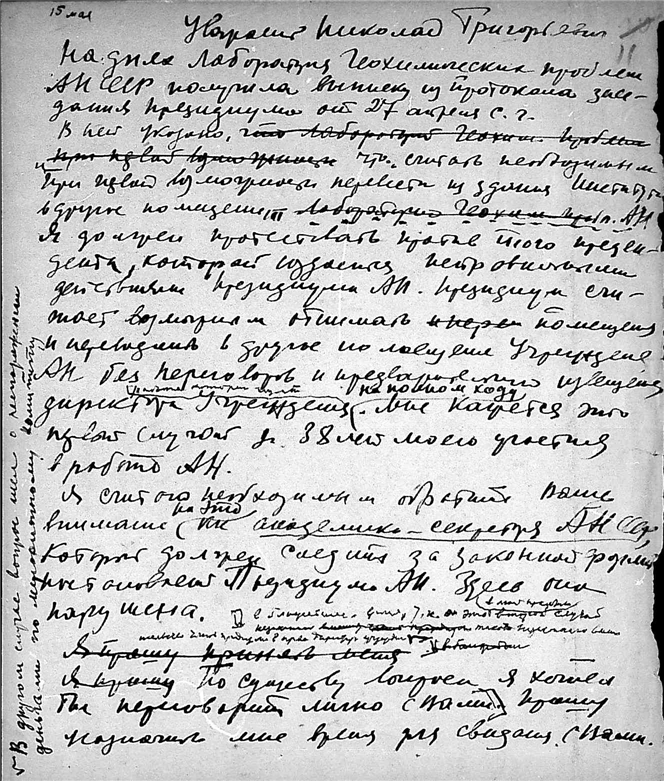 15 мая
Уважаемый Николай Григорьевич
На днях Лаборатория Геохимических проблем
АН СССР получила выписку из протокола засе-
дания президиума от 27 апреля с. г.
В ней указано, что Лаборатория Геохим. проблем
при первой возможности что считать необходимым
При первой возможности перевести из здания Института
в другое помещение Лабораторию Геохим. АН
Я должен протестовать против того преце-
дента, который создается неправильными
действиями Президиума АН. Президиум счи-
тает возможным отнимать помещения
и переводить в другое помещение Учреждение
АН без переговоров и предварительного извещения
на полном ходу
директора Учреждения. Мне кажется это
первый случай за 38 лет моего участия
в работе АН.
Я считаю необходимым обратить Ваше
внимание на это как академика-секретаря АН СССР,
который должен следить за законной формой
постановлений Президиума АН. Здесь она
нарушена.
Я прошу принять меня
Я прошу По существу вопроса я хотел
бы переговорить лично с Вами, прошу
назначить мне время для свидания с Вами.
В другом случае вопрос шел о
деньгами по